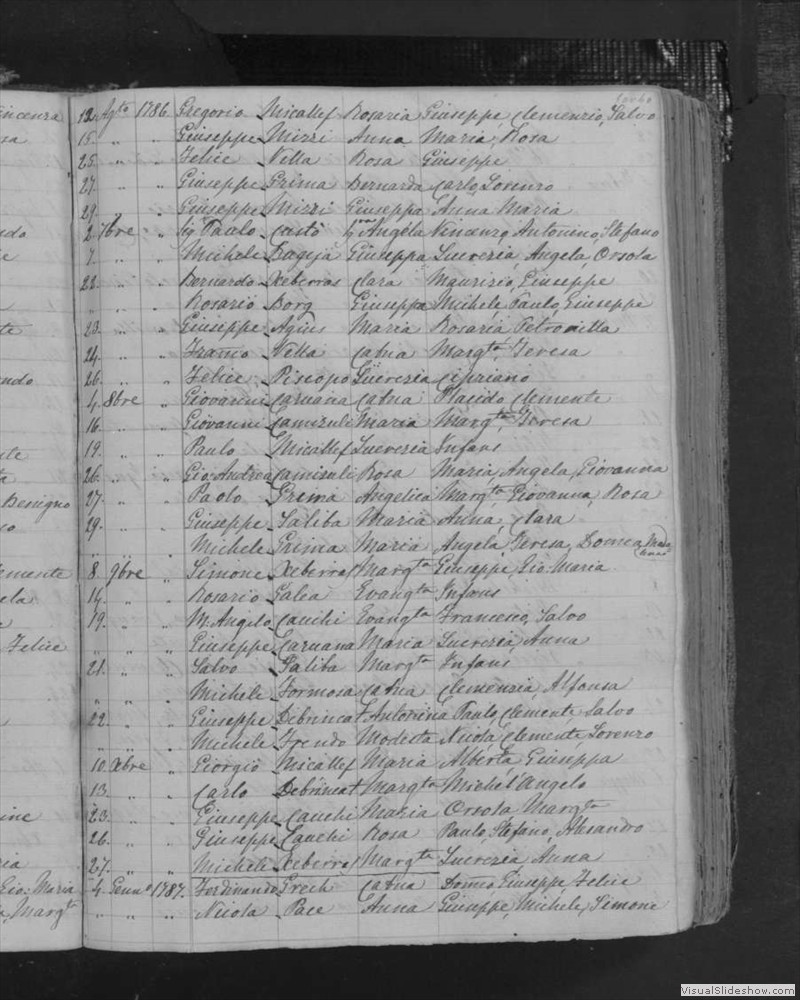 incenza 12. Agto 1786 Gregorio Micallef Rosaria Giuseppe Clemenzio, Salvo
sa 15. „ „ Giuseppe Mizzi Anna Maria, Rosa
25. „ „ Felice Vella Rosa Giuseppe
27. „ „ Giuseppe Grima Bernarda Carlo, Lorenzo
29. „ Giuseppe Mizzi Giuseppa Anna Maria
ndo 2. 7bre „ Sig Paolo Angela Vincenzo, Antonino, Stefano
e 7. „ „ Michele Bageja Giuseppa Lucrezia, Angela, Orsola
22. „ „ Bernardo Xeberras Clara Maurizio, Giuseppe
„ „ Rosario Borg Giuseppa Michele, Paulo, Giuseppe
te 23. „ „ Giuseppe Agius Maria Rosaria Petronilla
24. „ „ Franco Vella Catna Margta, Teresa
ndo 26. „ „ Felice Piscopo Lucrezia Cipriano
4. 8bre „ Giovanni Caruana Catna Placido Clemente
16. „ „ Giovanni Camizuli Maria Margta, Teresa
19. „ „ Paulo Micallef Lucrezia Infans
ta 26. „ „ Gio: Andrea Camizuli Rosa Maria, Angela, Giovanna
Benigno 27. „ „ Paolo Grima Angelica Margta, Giovanna, Rosa
co 29. „ „ Giuseppe Saliba Maria Anna, Clara
„ „ „ Michele Grima Maria Angela, Teresa, Domca
lemente 8. 9bre „ Simone Xeberras Margta Giuseppe, Gio: Maria
ela 14. „ „ Rosario Galea Evangta Infans
19. „ „ M. Angelo Cauchi Evangta Francesco, Salvo
Felice „ „ „ Giuseppe Caruana Maria Lucrezia, Anna
21. „ „ Salvo Saliba Margta Infans
„ „ „ Michele Formosa Catna Clemenzia Alfonsa
22. „ „ Giuseppe Debrincat Antonina Paulo, Clemente, Salvo
„ „ „ Michele Frendo Modesta Nicola, Clemente, Lorenzo
10. Xbre „ Giorgio Micallef Maria Alberta, Giuseppa
13. „ „ Carlo Debrincat Margta Michel'Angelo
ine 23. „ „ Giuseppe Cauchi Maria Orsola Margta
26. „ „ Giuseppe Cauchi Rosa Paulo, Stefano,
ia 27. „ „ Michele Xeberras Margta Lucrezia Anna
Gio: Maria 4. Genno 1787. Ferdinando Grech Catna Domco Giuseppe, Felice
Margta „ „ „ Nicola Pace Anna Giuseppe, Michele, Simone
VisualSlideshow.com